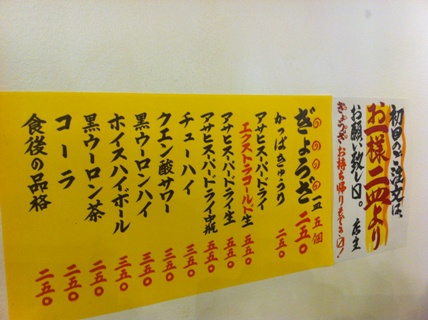 初回のご注文は、
お一様 二皿より
お願い致し〼。 店主
ぎょうざお持ち帰りもでき〼!
ぎょうざ 一皿 五個 二五〇
かっぱきゅうり 二五〇
アサヒスーパードライ
エクストラゴールド生 五五〇
アサヒスーパードライ生 五五〇
アサヒスーパードライ中瓶 五五〇
チューハイ 三五〇
クエン酸サワー 三五〇
黒ウーロンハイ 三五〇
ホイスハイボール 三五〇
黒ウーロン茶 二五〇
コーラ 二五〇
食後の品格 二五〇